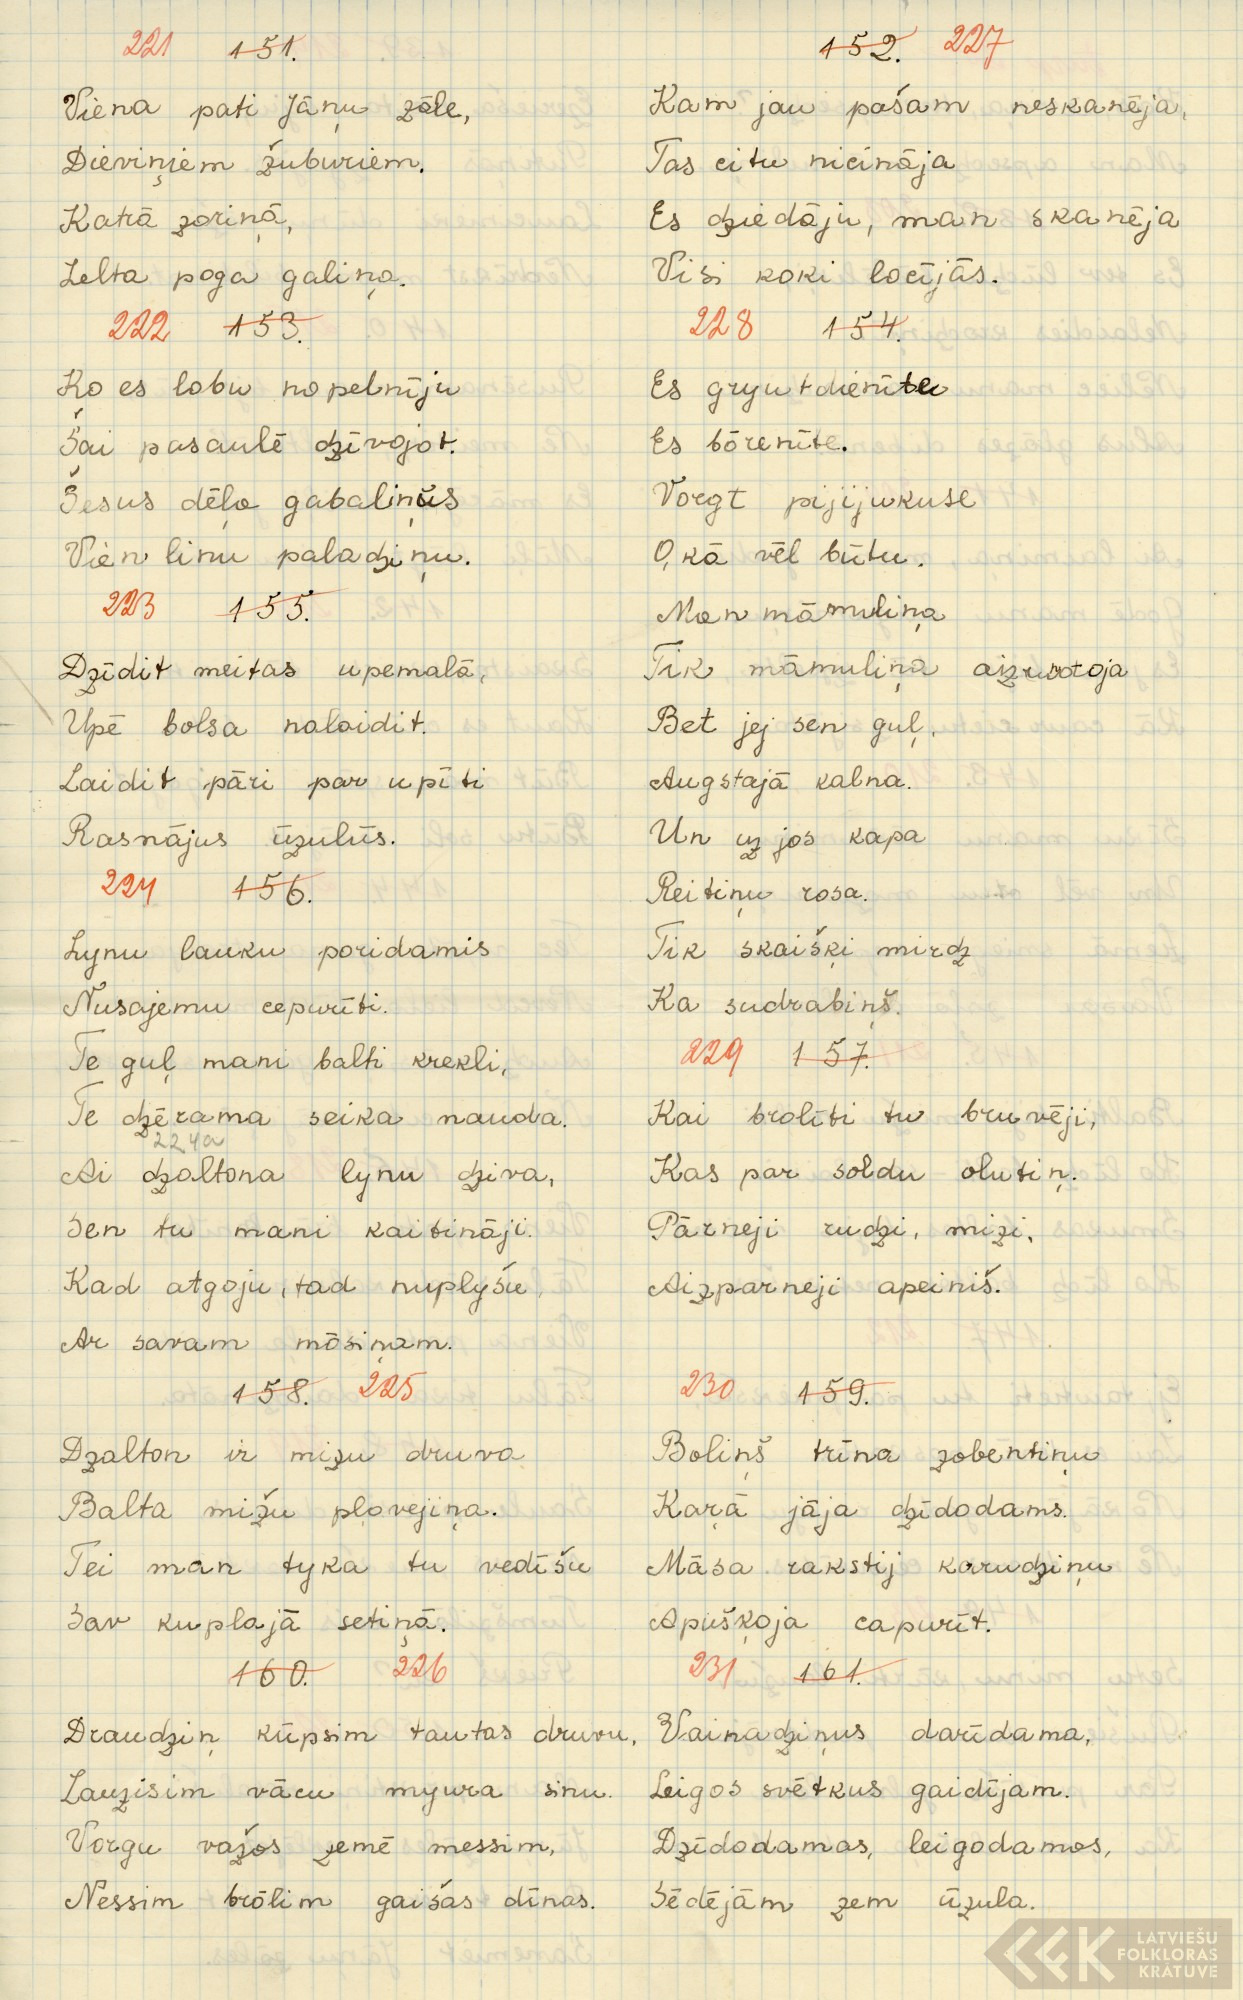 221 151.
Viena pati Jāņu zāle,
Dieviņiem žuburiem.
Katrā zoriņā,
Zelta poga galiņa.
222 153.
Ko es labu nopelnīju
Šai pasaulē dzīvojot.
Šešus dēļa gabaliņus
Vien linu paladziņu.
223 155.
Dzīdit meitas upemalā,
Upē bolsa nalaidit.
Laidit pāri par upīti
Rasnājus ūzulūs.
224 156.
Lynu lauku poridamis
Nusajemu cepurīti.
Te guļ mani balti krekli,
Te dzērama seika nauda.
224a
Ai dzaltona lynu dziva,
Sen tu mani kaitināji.
Kad atgoju, tad nuplyšu
Ar savam mōsiņam.
158. 225
Dzalton ir mizu druva
Balta mižu pļovejiņa.
Tei man tyka tu vedīšu
Sav kuplajā setiņā.
160. 226
Draudziņ kūpsim tautas druvu,
Lauzisim vācu myura sinu.
Vorgu važos zemē messim,
Nessim brōlim gaišas dīnas.
152. 227
Kam jau pašam neskanēja,
Tas citu nicināja
Es dziedāju, man skanēja
Visi koki locījās.
228 154.
Es gryutdienīte
Es bōrenīte.
Vorgt pijijukuse
O, kā vēl būtu.
Man māmuliņa
Tik māmuliņa aizruotoja
Bet jej sen guļ,
Augstajā kalna.
Un uz jos kapa
Reitiņu rosa.
Tik skaišķi mirdz
Ka sudrabiņš.
229 157.
Kai brolīti tu bruvēji,
Kas par soldu olutiņ.
Pārneji rudzi, mizi,
Aizparneji apeiniš.
230 159.
Boliņš trīna zobentiņu
Kaŗā jāja dzīdodams.
Māsa rakstij karudziņu
Apušķoja capurīt.
231 161.
Vainadziņus darīdama,
Leigos svētkus gaidījam.
Dzīdodamas, leigodamos,
Sēdējām zem ūzula.
LATVIEŠU
FOLKLORAS
KRĀTUVE